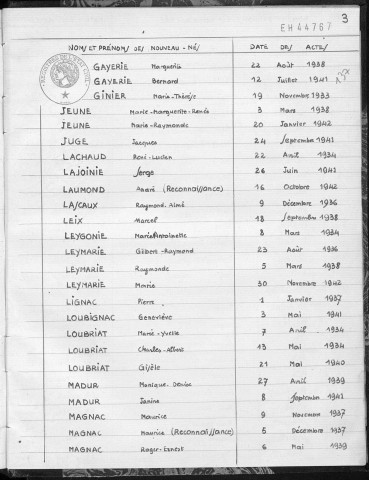 3
EH44767
NOMS ET PRÉNOMS DES NOUVEAU-NÉS DATE DES ACTES
GAYERIE Marguerite 22 Août 1938
GAYERIE Bernard 12 Juillet 1941
GINIER Marie-Thérèse 19 Novembre 1933
JEUNE Marie-Marguerite-Renée 3 Mars 1938
JEUNE Marie-Raymonde 20 Janvier 1942
JUGE Jacques 24 Septembre 1941
LACHAUD René-Lucien 22 Avril 1934
LAJOINIE Serge 26 Juin 1942
LAUMOND André (Reconnaissance) 16 Octobre 1942
LASCAUX Raymond.Aimé 9 Décembre 1936
LEIX Marcel 18 Septembre 1938
LEYGONIE Marie Antoinette 8 Mars 1934
LEYMARIE Gilbert-Raymond 23 Août 1936
LEYMARIE Raymonde 5 Mars 1938
LEYMARIE Marie 30 Novembre 1942
LIGNAC Pierre 1 Janvier 1937
LOUBIGNAC Geneviève 3 Mai 1941
LOUBRIAT Marie-Yvette 7 Avril 1934
LOUBRIAT Charles-Albert 13 Mai 1934
LOUBRIAT Gisèle 21 Mai 1940
MADUR Monique-Denise 27 Avril 1939
MADUR Janine 8 Septembre 1941
MAGNAC Maurice 9 Novembre 1937
MAGNAC Maurice (Reconnaissance) 5 Décembre 1937
MAGNAC Roger-Ernest 6 Mai 1939